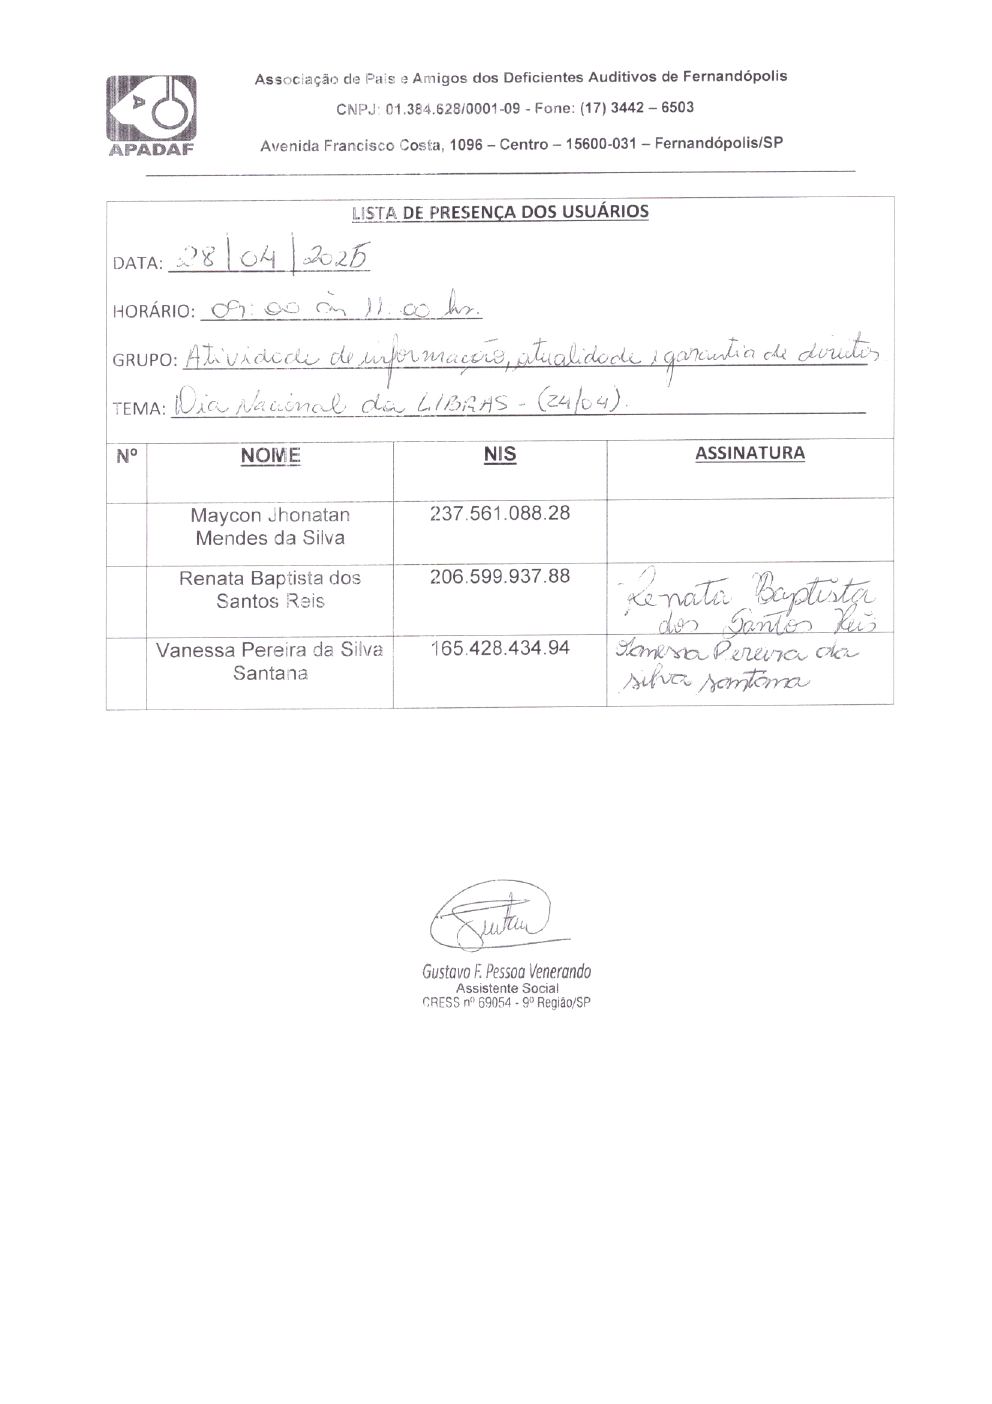 Associação de Pais e Amigos dos Deficientes Auditivos de Fernandópolis
CNPJ: 01.384.628/0001-09 - Fone: (17) 3442 – 6503
APADAF
Avenida Francisco Costa, 1096 – Centro – 15600-031 – Fernandópolis/SP
LISTA DE PRESENÇA DOS USUÁRIOS
DATA: 28/04/2025
HORÁRIO: 09:00 às 11:00 hr.
GRUPO: Atividade de informação, atualidade e garantia de direitos
TEMA: Dia Nacional da LIBRAS - (24/04).
Nº NOME NIS ASSINATURA
Maycon Jhonatan 237.561.088.28
Mendes da Silva
Renata Baptista dos 206.599.937.88 Renata Baptista
Santos Reis dos Santos Reis
Vanessa Pereira da Silva 165.428.434.94 Vanessa Pereira da
Santana silva santana
Gustavo F. Pessoa Venerando
Assistente Social
CRESS nº 69054 - 9º Região/SP